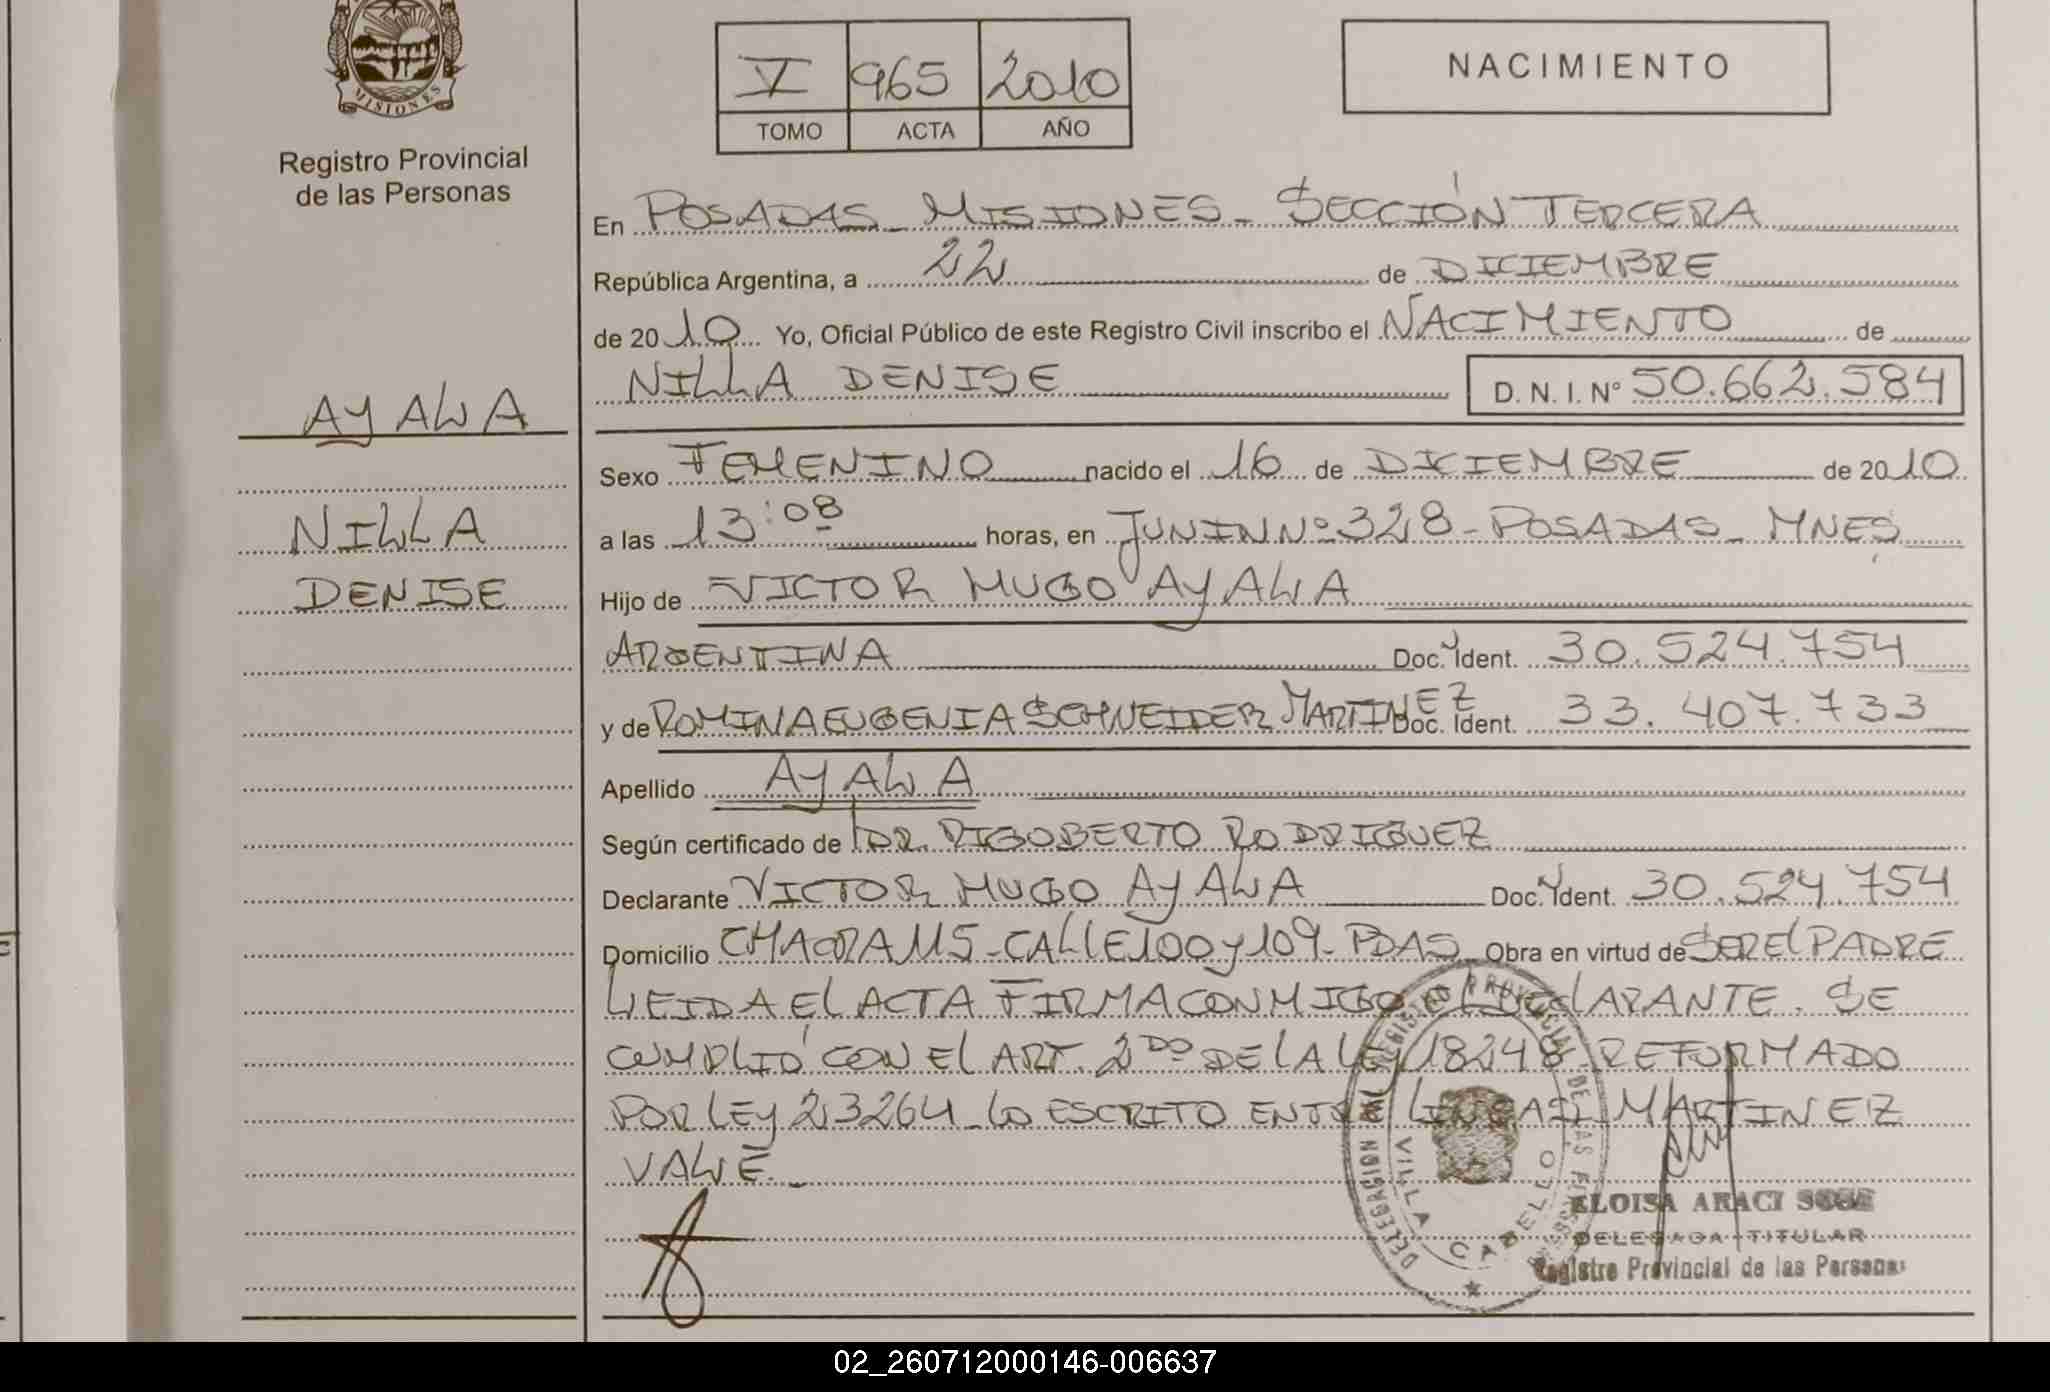 MISIONES
Registro Provincial
de las Personas
V 965 2010
TOMO ACTA AÑO
NACIMIENTO
En POSADAS_MISIONES_SECCIÓN TERCERA
República Argentina, a 22 de DICIEMBRE
de 2010 Yo, Oficial Público de este Registro Civil inscribo el NACIMIENTO de
NILLA DENISE D. N. I. Nº 50.662.584
AYALA
NILLA
DENISE
Sexo FEMENINO nacido el 16 de DICIEMBRE de 2010
a las 13:08 horas, en JUNIN Nº 328-POSADAS_MNES
Hijo de VICTOR HUGO AYALA
ARGENTINA Doc. Ident. 30.524.754
y de ROMINA EUGENIA SCHNEIDER MARTINEZ Doc. Ident. 33.407.733
Apellido AYALA
Según certificado de DR. RIGOBERTO RODRIGUEZ
Declarante VICTOR HUGO AYALA Doc. Ident. 30.524.754
Domicilio CHACRA 115-CALLE 100 y 109-PDAS Obra en virtud de SER EL PADRE
LEIDA EL ACTA FIRMA CONMIGO EL DECLARANTE. SE
CUMPLIÓ CON EL ART. 2DO DE LA LEY 18248 REFORMADO
POR LEY 23264_LO ESCRITO ENTRE LINEAS MARTINEZ
VALE._
REGISTRO PROVINCIAL DE LAS PERSONAS
DELEGACION
VILLA CABELLO
ELOISA ARACI
DELEGADA TITULAR
Registro Provincial de las Personas
02_260712000146-006637